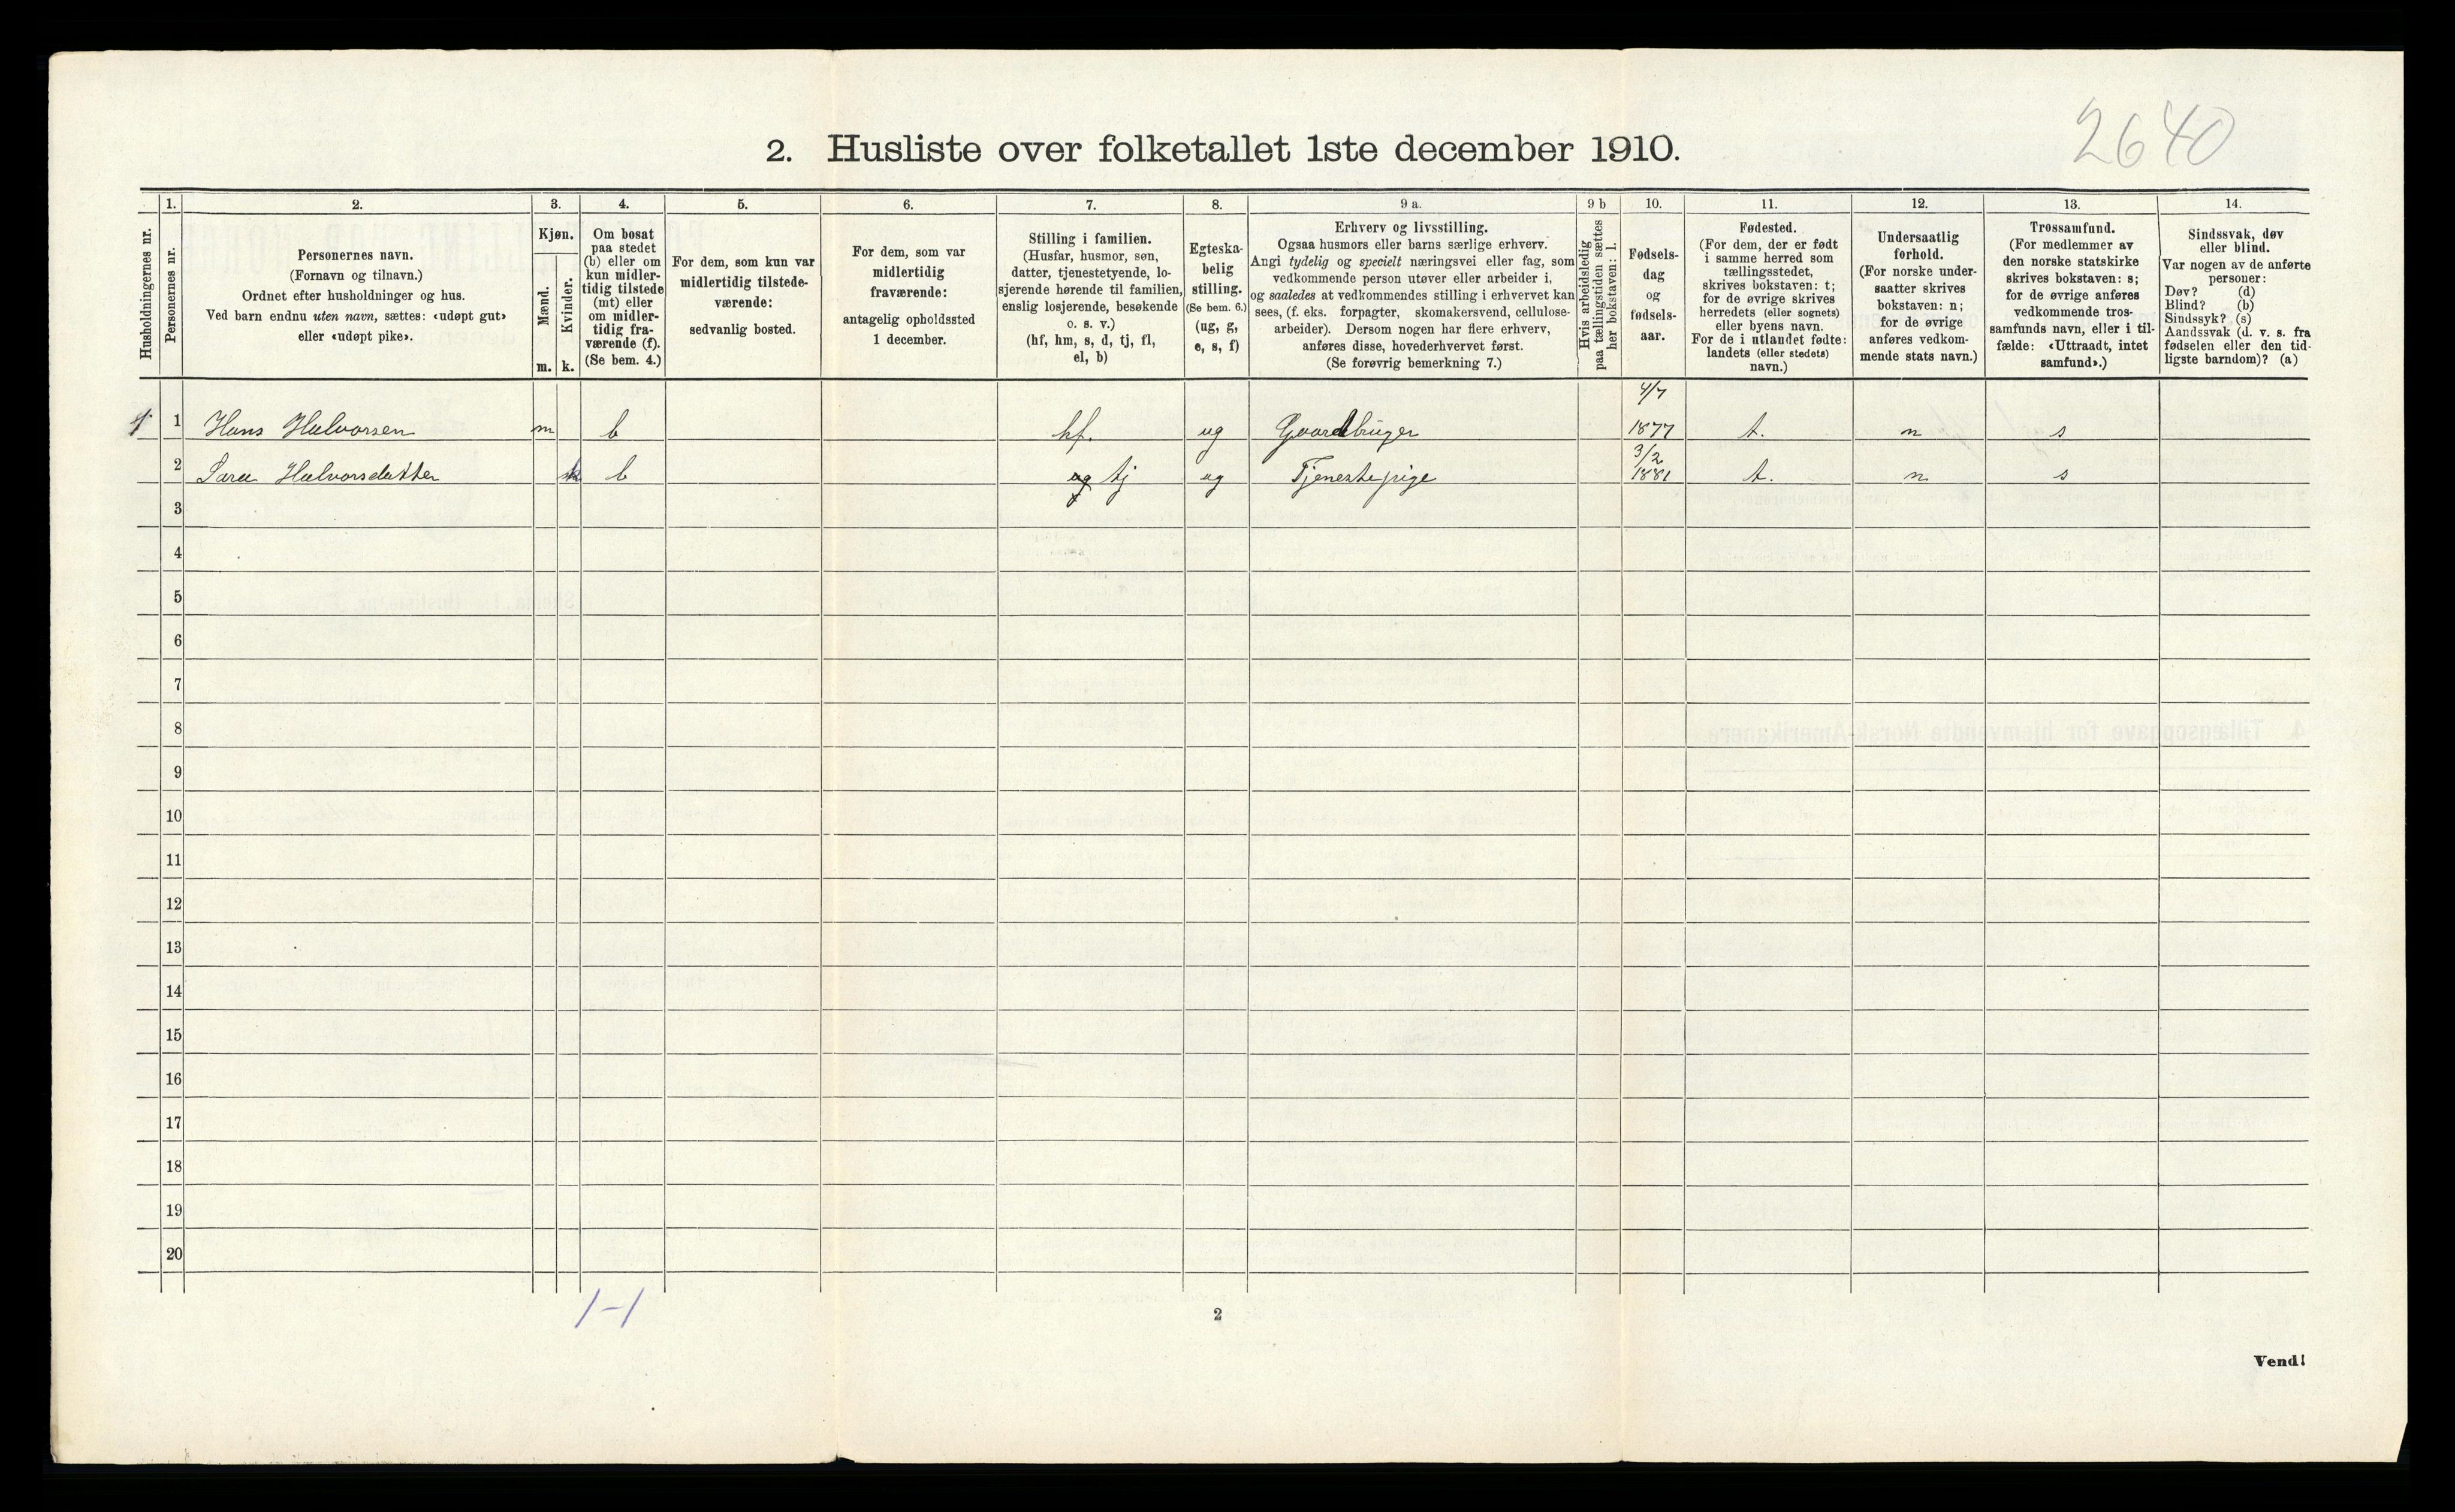 2640
2. Husliste over folketallet 1ste december 1910.
Husholdningernes nr.
1.
Personernes nr.
2.
Personernes navn.
(Fornavn og tilnavn.)
Ordnet efter husholdninger og hus.
Ved barn endnu uten navn, sættes: «udøpt gut»
eller «udøpt pike».
3.
Kjøn.
Mænd.
Kvinder.
m. k.
4.
Om bosat
paa stedet
(b) eller om
kun midler-
tidig tilstede
(mt) eller
om midler-
tidig fra-
værende (f).
(Se bem. 4.)
5.
For dem, som kun var
midlertidig tilstede-
værende:
sedvanlig bosted.
6.
For dem, som var
midlertidig
fraværende:
antagelig opholdssted
1 december.
7.
Stilling i familien.
(Husfar, husmor, søn,
datter, tjenestetyende, lo-
sjerende hørende til familien,
enslig losjerende, besøkende
o. s. v.)
(hf, hm, s, d, tj, fl,
el, b)
8.
Egteska-
belig
stilling.
(Se bem. 6.)
(ug, g,
e, s, f)
9 a.
Erhverv og livsstilling.
Ogsaa husmors eller barns særlige erhverv.
Angi tydelig og specielt næringsvei eller fag, som
vedkommende person utøver eller arbeider i,
og saaledes at vedkommendes stilling i erhvervet kan
sees, (f. eks. forpagter, skomakersvend, cellulose-
arbeider). Dersom nogen har flere erhverv,
anføres disse, hovederhvervet først.
(Se forøvrig bemerkning 7.)
9 b
Hvis arbeidsledig
paa tællingstiden sættes
her bokstaven: l.
10.
Fødsels-
dag
og
fødsels-
aar.
11.
Fødested.
(For dem, der er født
i samme herred som
tællingsstedet,
skrives bokstaven: t;
for de øvrige skrives
herredets (eller sognets)
eller byens navn.
For de i utlandet fødte:
landets (eller stedets)
navn.)
12.
Undersaatlig
forhold.
(For norske under-
saatter skrives
bokstaven: n;
for de øvrige
anføres vedkom-
mende stats navn.)
13.
Trossamfund.
(For medlemmer av
den norske statskirke
skrives bokstaven: s;
for de øvrige anføres
vedkommende tros-
samfunds navn, eller i til-
fælde: «Uttraadt, intet
samfund».)
14.
Sindssvak, døv
eller blind.
Var nogen av de anførte
personer:
Døv? (d)
Blind? (b)
Sindssyk? (s)
Aandssvak (d. v. s. fra
fødselen eller den tid-
ligste barndom)? (a)
4/7
1 1 Hans Halvorsen m b hf. ug Gaardbruger 1877 t. n s
3/2
2 Sara Halvorsdatter k b ug tj ug Tjenestepige 1881 t. n s
3
4
5
6
7
8
9
10
11
12
13
14
15
16
17
18
19
20
1-1
2
Vend!